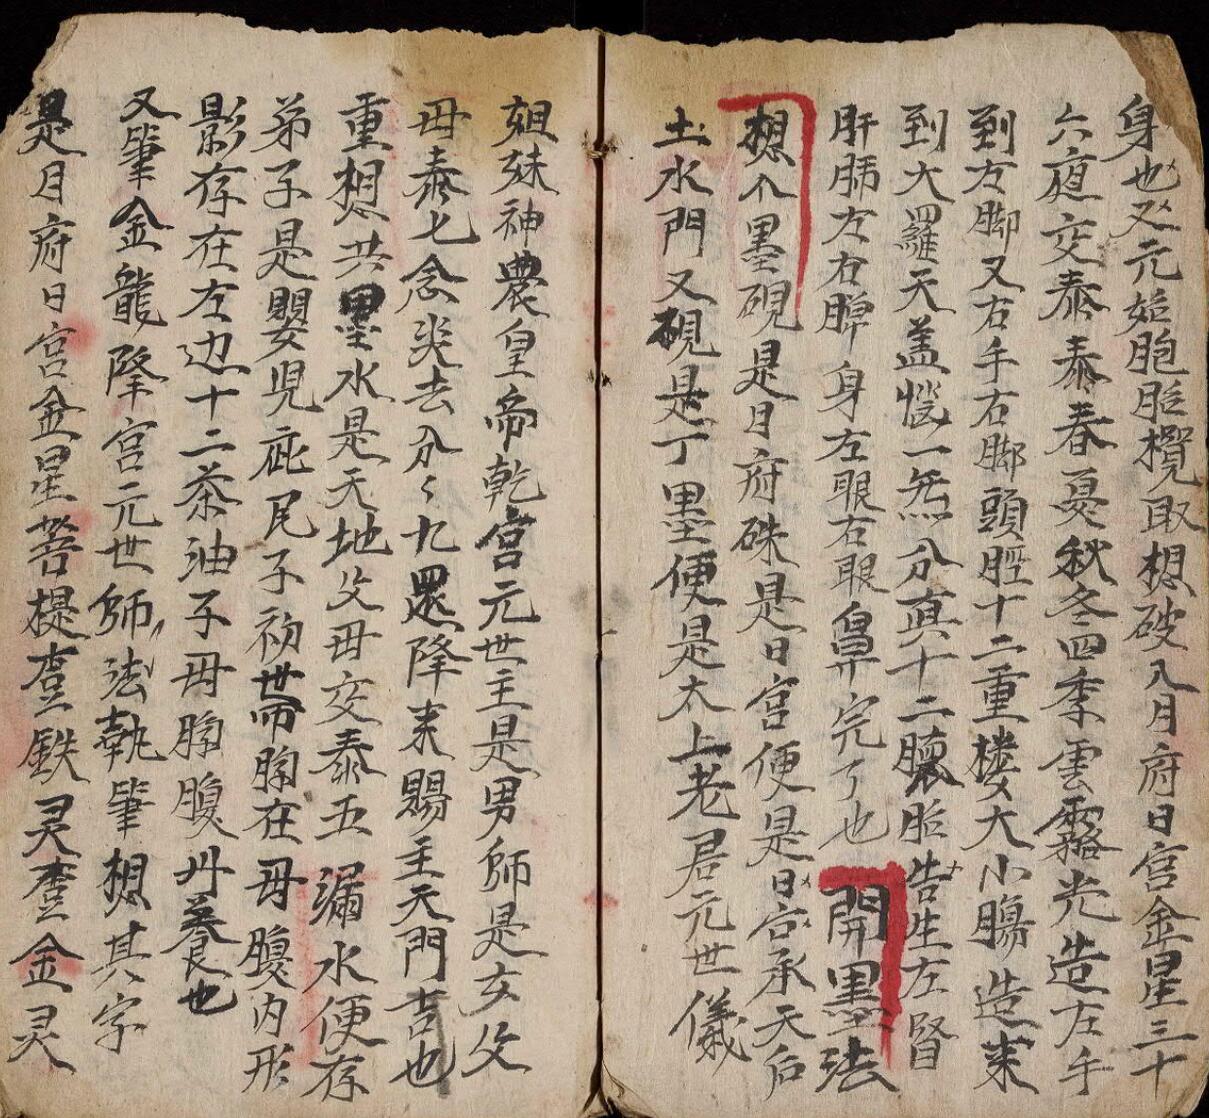 身也又元始胞胎攬取想破入月府日宮金星三十
六夜交泰泰春夏秋冬四季雲霧光造左手
到左脚又右手右脚頭脛十二重楼大小腸造来
到大羅天盖惱一炁分真十二臟胎告生左腎
肝肺左右脾身左眼右眼鼻完了也開墨法
想入墨硯是月府硃是日宮便是日宮承天后
土水門又硯是丁墨便是太上老君元世儀
姐妹神農皇帝乾宮元世主是男師是女父
母泰七念炎去分〻九還降来賜主天門吉也
重想共墨水是天地父母交泰五漏水便存
弟子是嬰児疵尾子初世而胸在母腹内形
影存在左边十二茶油子母胸腹廾養也
又筆金龍降宮元世師法執筆想其字
是月府日宮金星菩提查鉄灵查金灵